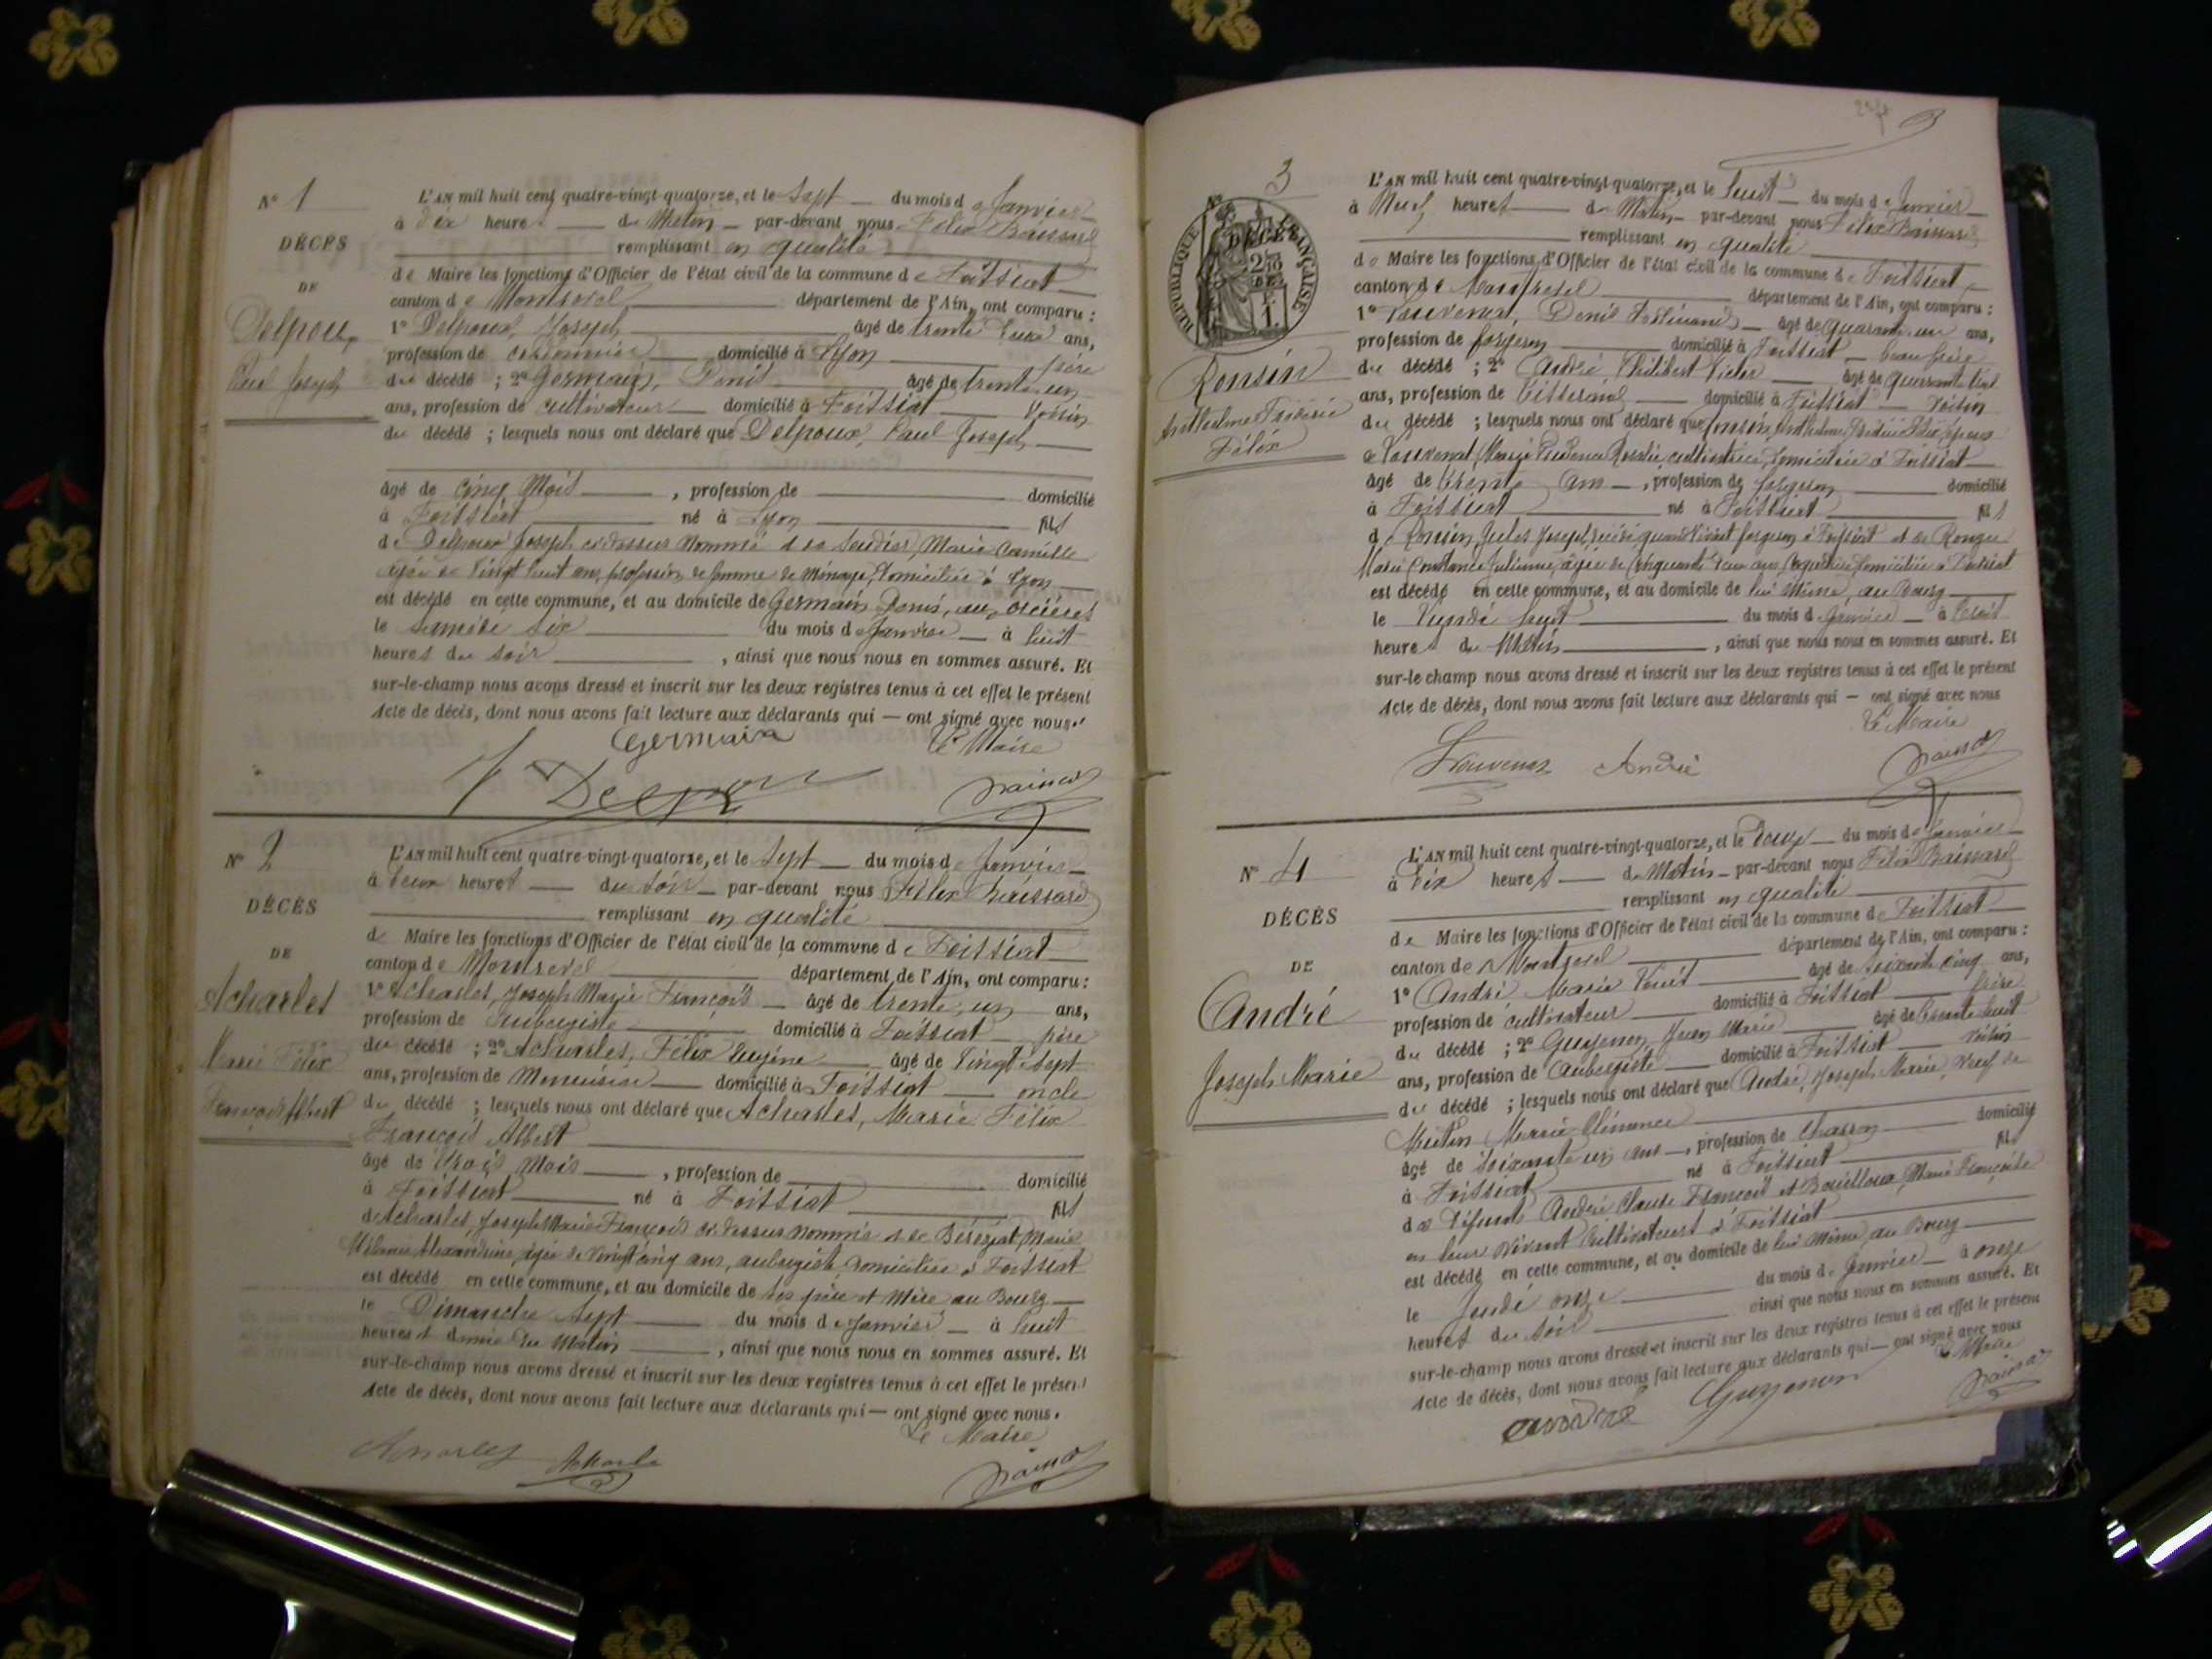 N° 1
DÉCÈS
DE
Delpoux
Paul Joseph
L'AN mil huit cent quatre-vingt-quatorze, et le Sept du mois de Janvier
à dix heures du Matin par-devant nous Félix Baissard
remplissant en qualité
de Maire les fonctions d'Officier de l'état civil de la commune de Foissiat
canton de Montrevel département de l'Ain, ont comparu :
1° Delpoux, Joseph, âgé de trente deux ans,
profession de cordonnier domicilié à Lyon père
du décédé ; 2° Germain, Denis âgé de trente un
ans, profession de cultivateur domicilié à Foissiat voisin
du décédé ; lesquels nous ont déclaré que Delpoux, Paul Joseph
âgé de cinq Mois , profession de domicilié
à Foissiat né à Lyon fils
de Delpoux Joseph ci-dessus nommé et de Marie Camille
âgée de vingt huit ans, profession de femme de ménage, domiciliée à Lyon
est décédé en cette commune, et au domicile de Germain Denis, aux
le Samedi six du mois de Janvier à huit
heures du soir , ainsi que nous nous en sommes assuré. Et
sur-le-champ nous avons dressé et inscrit sur les deux registres tenus à cet effet le présent
Acte de décès, dont nous avons fait lecture aux déclarants qui — ont signé avec nous.
Germain Le Maire
N° 2
DÉCÈS
DE
Acharles
Marie Félix
François Albert
L'AN mil huit cent quatre-vingt-quatorze, et le Sept du mois de Janvier
à deux heures du soir par-devant nous Félix Baissard
remplissant en qualité
de Maire les fonctions d'Officier de l'état civil de la commune de Foissiat
canton de Montrevel département de l'Ain, ont comparu :
1° Acharles, Joseph Marie François âgé de trente un ans,
profession de Aubergiste domicilié à Foissiat père
du décédé ; 2° Acharles, Félix Eugène âgé de vingt sept
ans, profession de Menuisier domicilié à Foissiat oncle
du décédé ; lesquels nous ont déclaré que Acharles, Marie Félix
François Albert
âgé de trois Mois , profession de domicilié
à Foissiat né à Foissiat fils
de Acharles, Joseph Marie François ci-dessus nommé et de Béréziat, Marie
Mélanie Alexandrine, âgée de vingt cinq ans, aubergiste domiciliée à Foissiat
est décédé en cette commune, et au domicile de ses père et Mère au Bourg
le Dimanche Sept du mois de Janvier à huit
heures et demie du Matin , ainsi que nous nous en sommes assuré. Et
sur-le-champ nous avons dressé et inscrit sur les deux registres tenus à cet effet le présent
Acte de décès, dont nous avons fait lecture aux déclarants qui — ont signé avec nous.
Le Maire
Acharles
3
N° 3
DÉCÈS
RÉPUBLIQUE FRANÇAISE
Ronsin
Anthelme Frédéric
Félix
L'AN mil huit cent quatre-vingt-quatorze, et le huit du mois de Janvier
à Neuf heures du Matin par-devant nous Félix Baissard
remplissant en qualité
de Maire les fonctions d'Officier de l'état civil de la commune de Foissiat
canton de Montrevel département de l'Ain, ont comparu :
1° Louvenat, Denis Ferdinand âgé de quarante un ans,
profession de forgeron domicilié à Foissiat beau frère
du décédé ; 2° André Philibert Victor âgé de quarante
ans, profession de domicilié à Foissiat voisin
du décédé ; lesquels nous ont déclaré que Ronsin, Anthelme Frédéric Félix époux
de Louvenat, Marie Prudence Rosalie, cultivatrice, domiciliée à Foissiat
âgé de trente ans , profession de forgeron domicilié
à Foissiat né à Foissiat fils
de Ronsin Jules Joseph, décédé, quand vivait forgeron à Foissiat et de
Marie Constance Julienne, âgée de cinquante deux ans, domiciliée à Foissiat
est décédé en cette commune, et au domicile de lui même, au Bourg
le Lundi huit du mois de Janvier à trois
heures du Matin , ainsi que nous nous en sommes assuré. Et
sur-le-champ nous avons dressé et inscrit sur les deux registres tenus à cet effet le présent
Acte de décès, dont nous avons fait lecture aux déclarants qui — ont signé avec nous
Le Maire
Louvenat André
N° 4
DÉCÈS
DE
André
Joseph Marie
L'AN mil huit cent quatre-vingt-quatorze, et le douze du mois de Janvier
à dix heures du Matin par-devant nous Félix Baissard
remplissant en qualité
de Maire les fonctions d'Officier de l'état civil de la commune de Foissiat
canton de Montrevel département de l'Ain, ont comparu :
1° André, Marie Denis âgé de soixante cinq ans,
profession de cultivateur domicilié à Foissiat frère
du décédé ; 2° Guyonon, Jean Marie âgé de trente huit
ans, profession de aubergiste domicilié à Foissiat voisin
du décédé ; lesquels nous ont déclaré que André, Joseph Marie, veuf de
Marie Clémence
âgé de soixante un ans , profession de charron domicilié
à Foissiat né à Foissiat fils
de défunts André Claude François et Bouilloux Marie Françoise
en leur vivant cultivateurs à Foissiat
est décédé en cette commune, et au domicile de lui même, au Bourg
le Jeudi onze du mois de Janvier à onze
heures du soir ainsi que nous nous en sommes assuré. Et
sur-le-champ nous avons dressé et inscrit sur les deux registres tenus à cet effet le présent
Acte de décès, dont nous avons fait lecture aux déclarants qui — ont signé avec nous
Le Maire
andré Guyonon